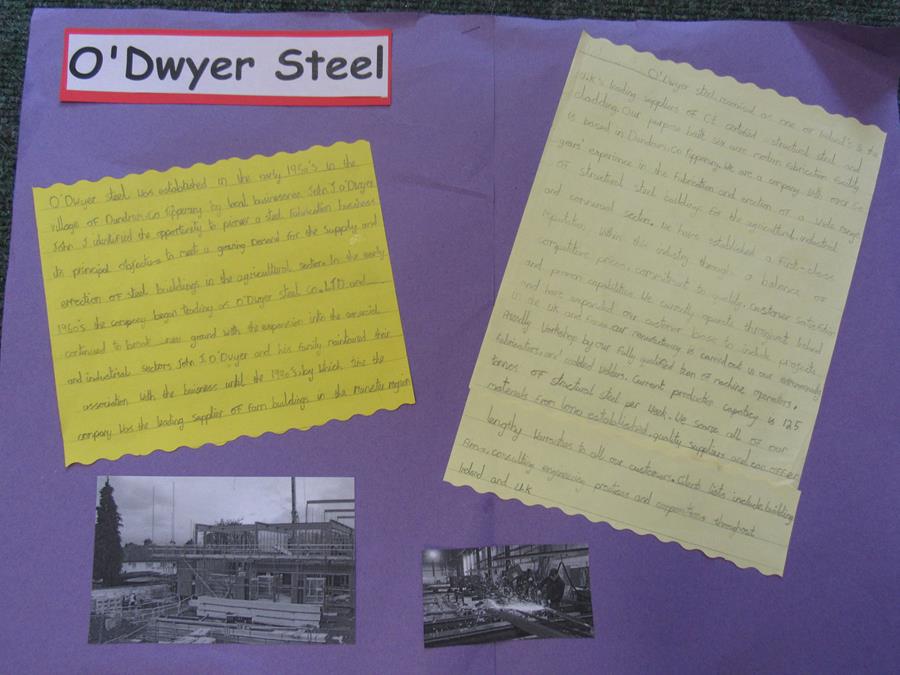 O'Dwyer Steel
O'Dwyer steel was established in the early 1950's in the
village of Dundrum, Co Tipperary by local businessman John J. O'Dwyer
John J identified the opportunity to pioneer a steel fabrication business
its principal objective to meet a growing Demand for the supply and
errection of steel buildings in the agricultural sector. In the early
1960's the company began trading as O'Dwyer Steel Co. LTD and
continued to break new ground with the expansion into the
and industrial sectors John J. O'Dwyer and his family their
association with the until the 1990's, by which time the
company was the leading supplier of farm buildings in the region
O'Dwyer steel, as one of Ireland's & the
U.k's leading suppliers of CE certified structural steel and
cladding. Our purpose built metres fabrication facility
is based in Dundrum, Co Tipperary. We are a company with over
years' experience in the fabrication and erection of a wide range
of structural steel buildings for the agricultural, industrial
and commercial sectors. we have established a first-class
reputation within this industry through a balance of
competitive prices, commitment to quality, customer satisfaction
and proven capabilities. We currently operate throughout Ireland
and have expanded our customer base to include projects
in the UK and our manufacturing is carried out in our
friendly workshop by our fully qualified team of machine operators,
fabricators, and coded welders. Current production capacity is 125
tonnes of structural steel per week. We source all of our
materials from long established, quality suppliers and can offer
lengthy warranties to all our customers. Client lists include building
consulting engineering practices and throughout
Ireland and U.k